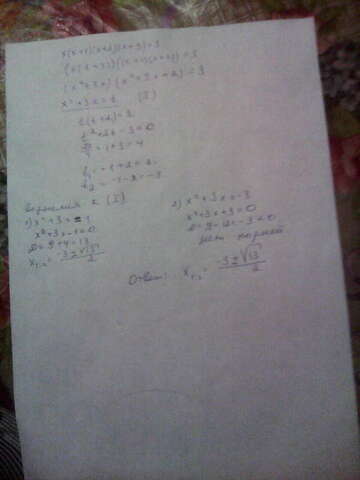 x(x+1)(x+2)(x+3)=3
(x(x+3))((x+1)(x+2))=3
(x²+3x)(x²+3x+2)=3
x²+3x=t (I)
t(t+2)=3
t²+2t-3=0
D/4=1+3=4
t₁=-1+2=1
t₂=-1-2=-3
Вернёмся к (I)
1) x²+3x=1
x²+3x-1=0
D=9+4=13
x₁,₂=(-3±√13)/2
2) x²+3x=-3
x²+3x+3=0
D=9-12=-3<0
нет корней
Ответ: x₁,₂=(-3±√13)/2